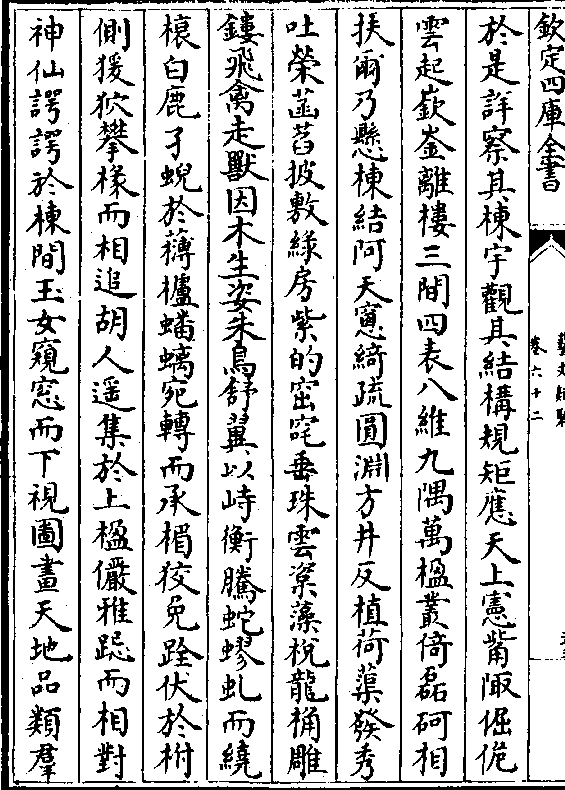 欽定四庫全書
藝文類聚
卷六十二
於是詳察其棟宇觀其結構規矩應天上憲觜陬倔佹
雲起嶔崟離樓三間四表八維九隅萬楹叢倚磊砢相
扶爾乃懸棟結阿天窻綺疏圓淵方井反植荷蕖發秀
吐榮菡萏披敷綠房紫的窋窀垂珠雲楶藻梲龍桷雕
鏤飛禽走獸因木生姿朱鳥舒翼以峙衡騰蛇蟉虬而繞
榱白鹿孑蜺於薄櫨蟠螭宛轉而承楣狡兔跧伏於柎
側猨狖攀椽而相追胡人遥集於上楹儼雅跽而相對
神仙諤諤於棟間玉女窺窓而下視圖畫天地品類羣